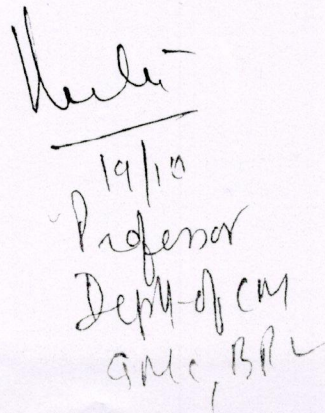 19/10
Professor
Deptt. of CM
GMC, BPL